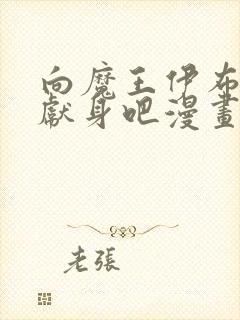 向魔王伊布
獻身吧漫畫
老張